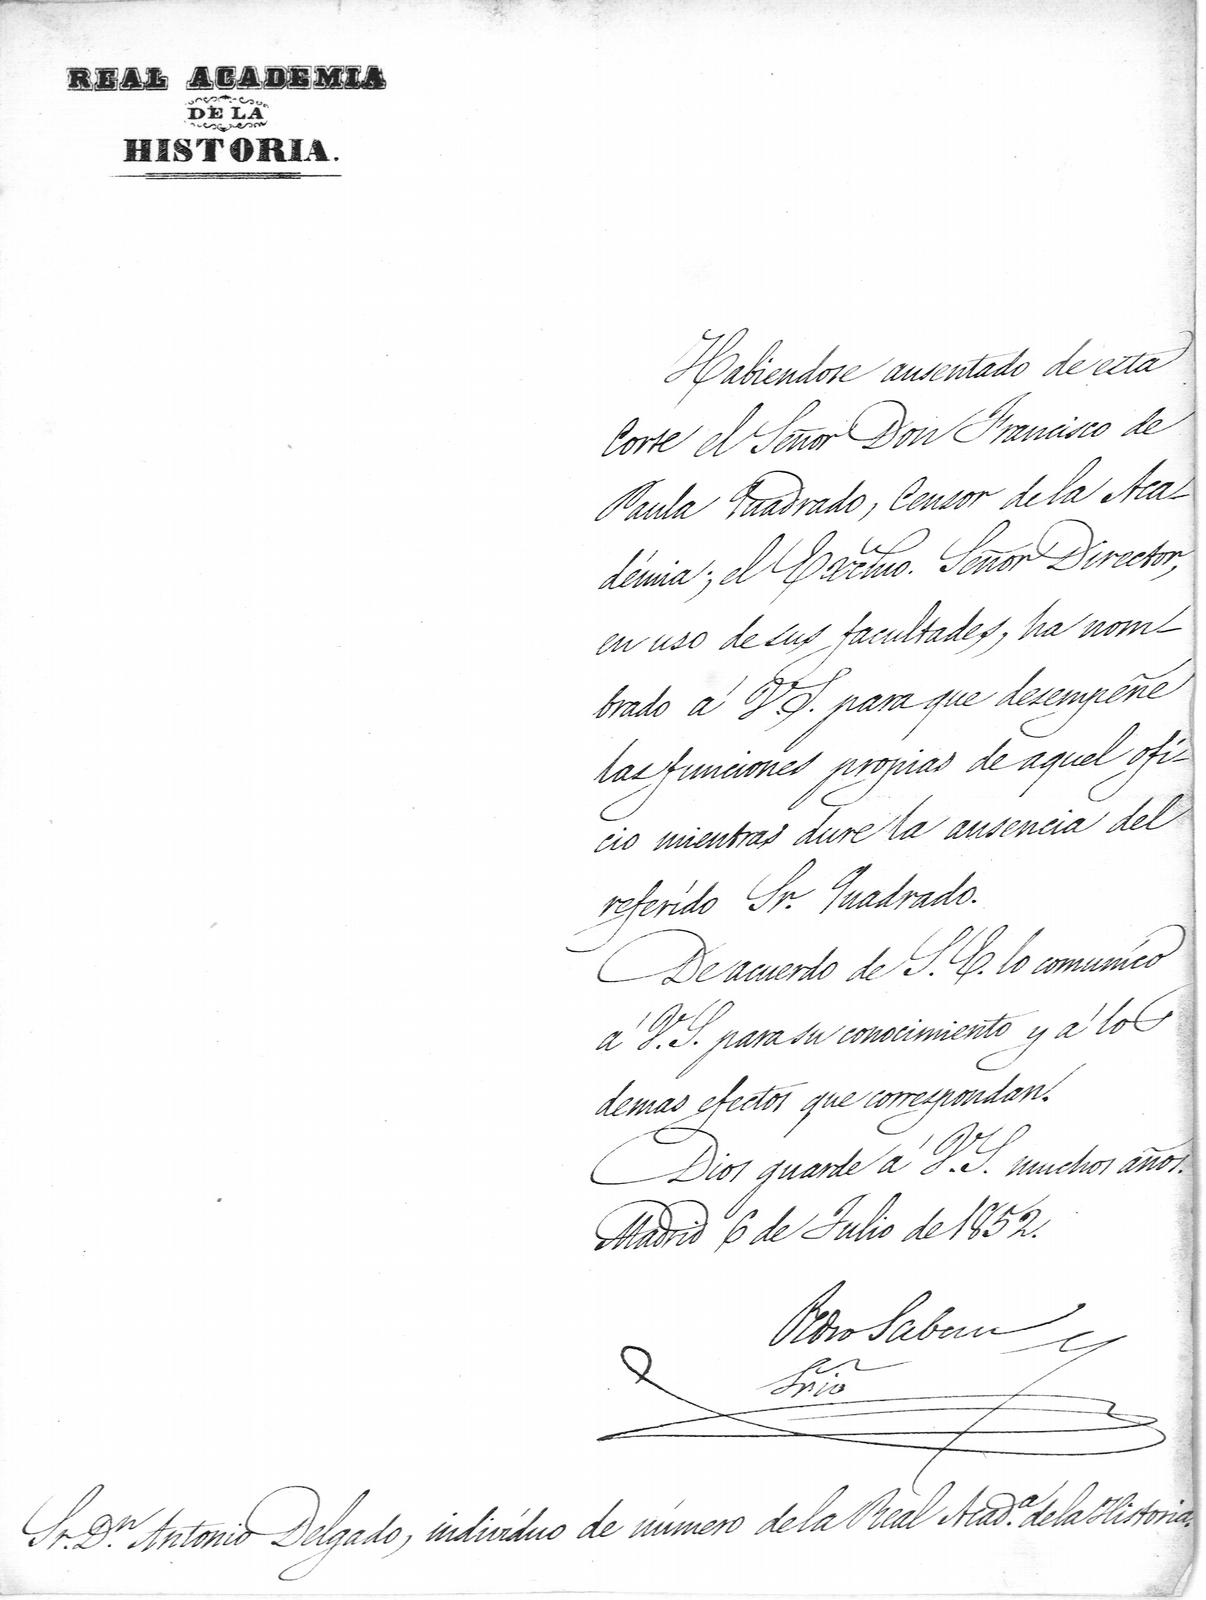 REAL ACADEMIA
DE LA
HISTORIA.
Habiendose ausentado de esta
Corte el Señor Don Francisco de
Paula Quadrado, Censor de la Aca-
démia; el Excmo. Señor Director,
en uso de sus facultades, ha nom-
brado á V.S. para que desempeñe
las funciones propias de aquel ofi-
cio mientras dure la ausencia del
referido Sr. Quadrado.
De acuerdo de S.E. lo comunico
á V.S. para su conocimiento y á lo
demas efectos que correspondan.
Dios guarde á V.S. muchos años.
Madrid 6 de Julio de 1852.
Pedro Sabau
Srio
Sr. Dn Antonio Delgado, individuo de número de la Real Acad.a de la Historia.